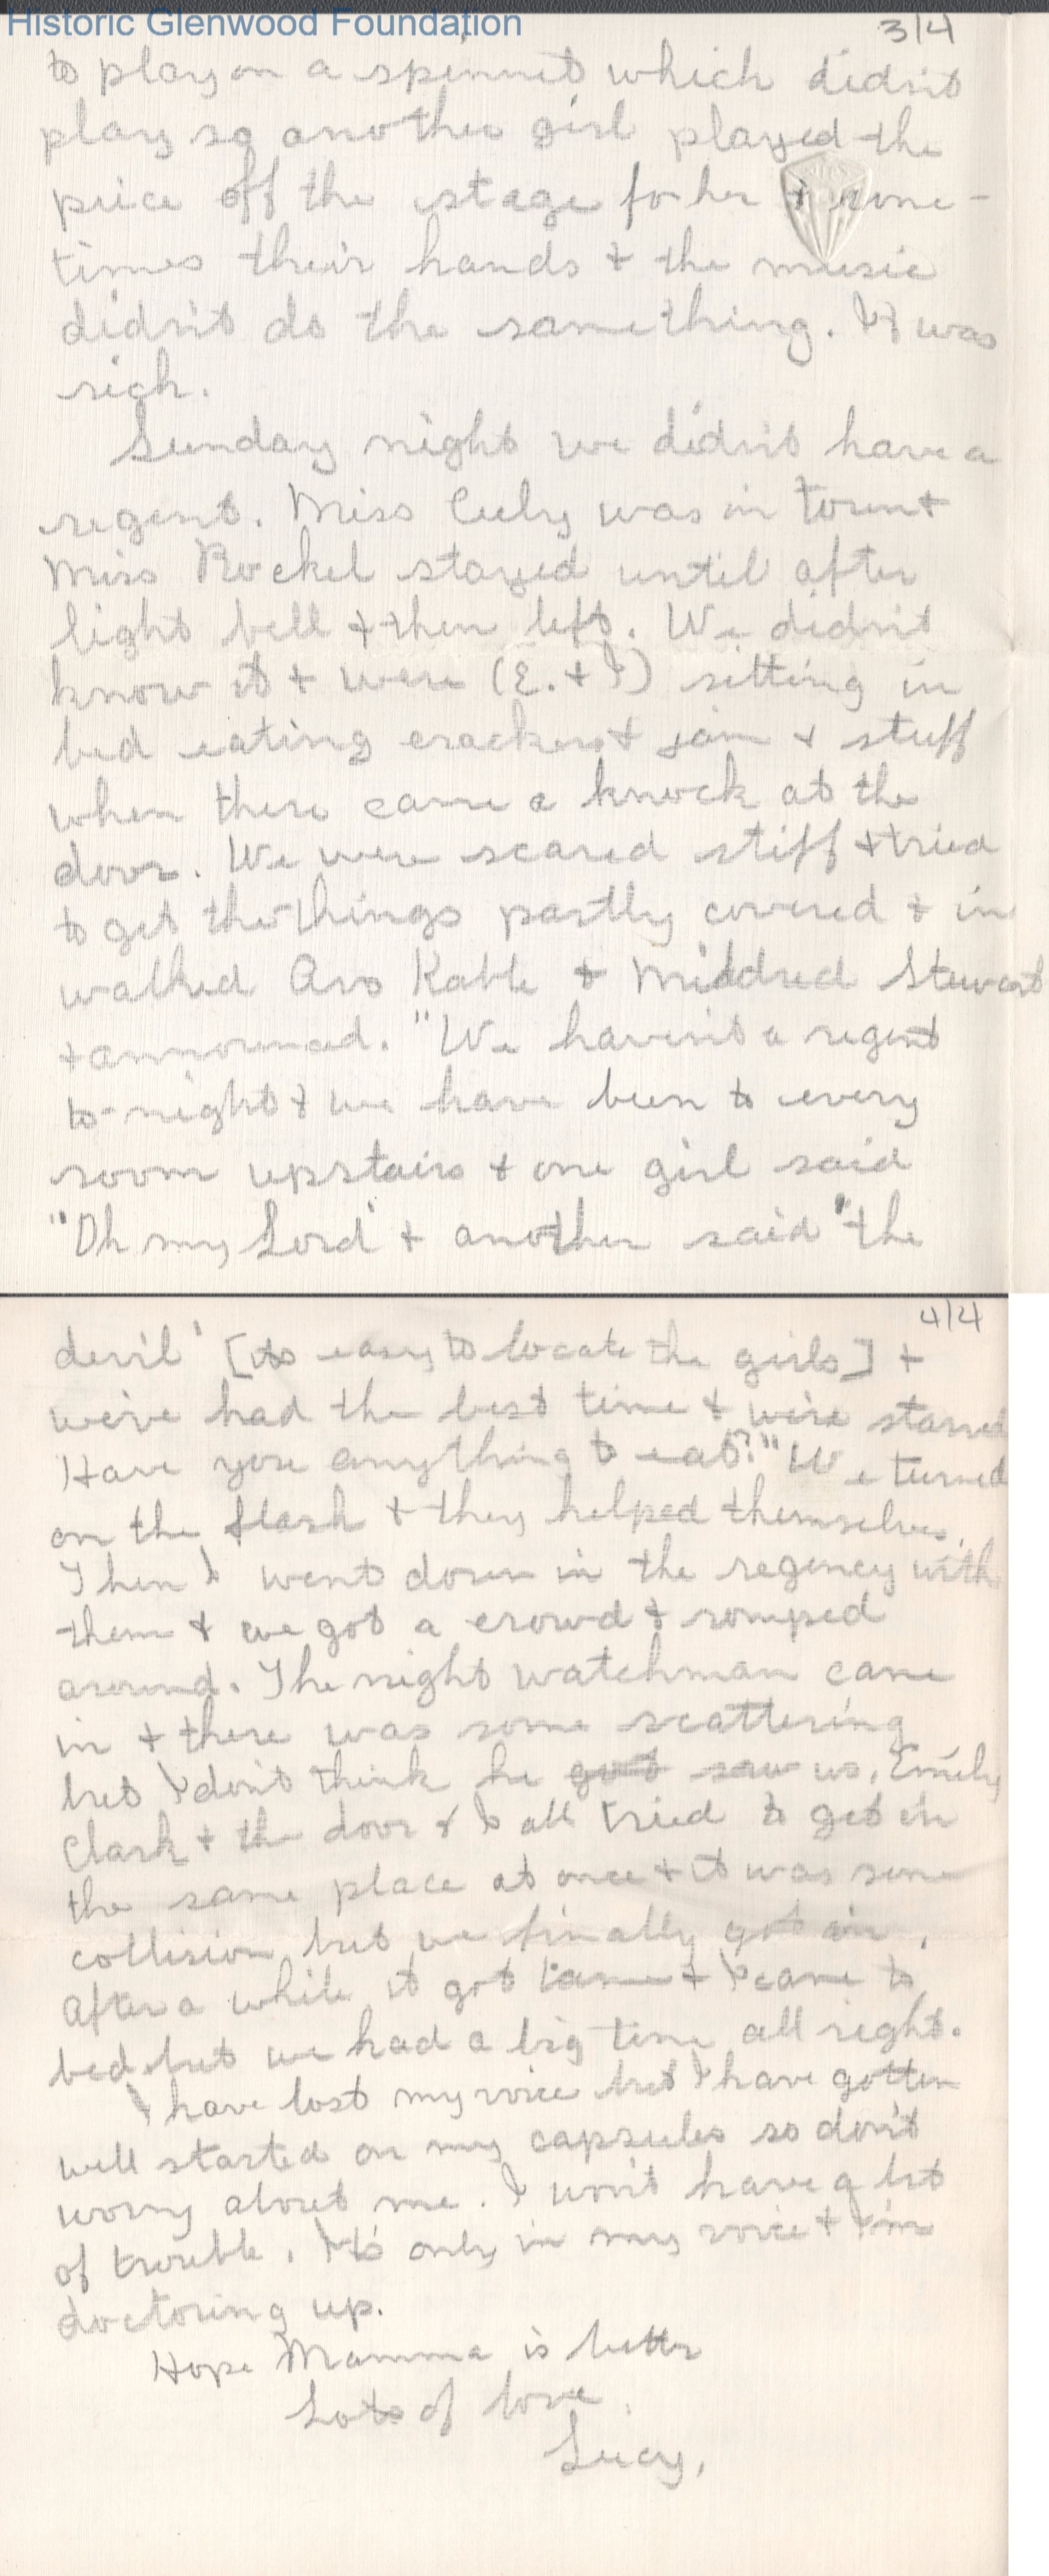 Historic Glenwood Foundation
3/4
to play on a spinnet which didn't
play so another girl played the
peice off the stage for her & some-
times their hands & the music
didn't do the same thing. It was
rich.
Sunday night we didn't have a
regent. Miss was in town &
Miss Rockel stayed until after
light bell & then left. We didn't
know it & were (E. & I) sitting in
bed eating crackers & jam & stuff
when there came a knock at the
door. We were scared stiff & tried
to get the things partly covered & in
walked Avo Kable & Mildred Stewart
& announced. "We haven't a regent
to-night & we have been to every
room upstairs & one girl said
"Oh my Lord" & another said "the
4/4
devil' [its easy to locate the girls] &
we've had the best time & we're starved
Have you anything to eat?" We turned
on the flash & they helped themselves.
Then I went down in the regency with
them & we got a crowd & romped
around. The night watchman came
in & there was some scattering
but I don't think he got saw us. Emily
Clark & the door & I all tried to get in
the same place at once & it was some
collision but we finally got in.
After a while it got tame & I came to
bed but we had a big time all right.
I have lost my voice but I have gotten
well started on my capsules so don't
worry about me. I won't have a bit
of trouble. It's only in my voice & I'm
doctoring up.
Hope Mamma is better
Lots of love.
Lucy.